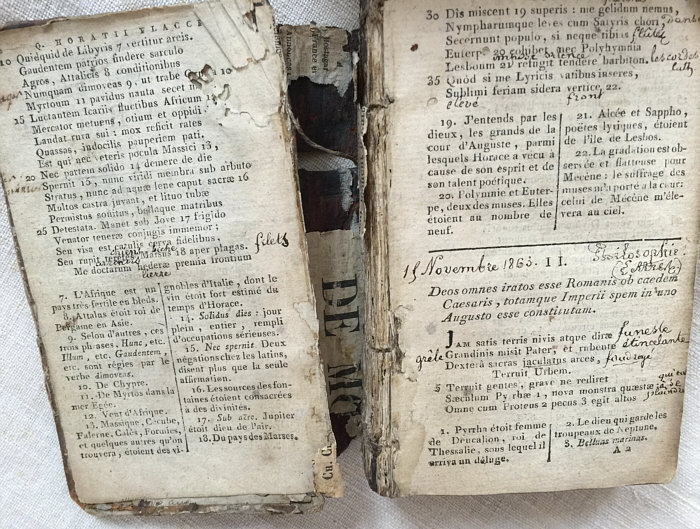 Q. HORATII FLACCI
10 Quidquid de Libycis 7 verritur areis.
Gaudentem patrios findere sarculo
Agros, Attalicis 8 conditionibus
Nunquam dimoveas 9, ut trabe
10
Myrtoum 11 pavidus nauta secet
15 Luctantem Icariis fluctibus Africum 12
Mercator metuens, otium et oppidi
Laudat rura sui : mox reficit rates
Quassas, indocilis pauperiem pati.
Est qui nec veteris pocula Massici 13,
20 Nec partem solido 14 demere de die
Spernit 15, nunc viridi membra sub arbuto
Stratus, nunc ad aquæ lene caput sacræ 16
Multos castra juvant, et lituo tubæ
Permistus sonitus, bellaque matribus
25 Detestata. Manet sub Jove 17 frigido
Venator teneræ conjugis immemor ;
Seu visa est catulis cerva fidelibus,
Seu rupit Marsus 18 aper plagas.
filets
Me doctarum hederæ præmia frontium
lierre
7. L'Afrique est un
pays très-fertile en bleds.
8. Attalus étoit roi de
Pergame en Asie.
9. Selon d'autres, ces
trois phrases, Hunc, etc.
Illum, etc. Gaudentem,
etc. sont régies par le
verbe dimoveas.
10. De Chypre.
11. De Myrtos dans la
mer Egée.
12. Vent d'Afrique.
13. Massique, Cécube,
Falerne, Calès, Formies,
et quelques autres qu'on
trouvera, étoient des vi-
gnobles d'Italie, dont le
vin étoit fort estimé du
temps d'Horace.
14. Solidus dies : jour
plein, entier, rempli
d'occupations sérieuses.
15. Nec spernit. Deux
négations chez les latins,
disent plus que la seule
affirmation.
16. Les sources des fon-
taines étoient consacrées
à des divinités.
17. Sub aere. Jupiter
étoit dieu de l'air.
18. Du pays des Marses.
DE
Cu. G.
30 Dîs miscent 19 superis : me gelidum nemus,
Nympharumque leves cum Satyris chori
Secernunt populo, si neque tibias
Euterpe 20 cohibet, nec Polyhymnia
Lesboum 21 refugit tendere barbiton.
35 Quòd si me Lyricis vatibus inseres,
Sublimi feriam sidera vertice 22.
élevé front
19. J'entends par les
dieux, les grands de la
cour d'Auguste, parmi
lesquels Horace a vécu à
cause de son esprit et de
son talent poétique.
20. Polymnie et Euter-
pe, deux des muses. Elles
étoient au nombre de
neuf.
21. Alcée et Sappho,
poëtes lytiques, étoient
de l'île de Lesbos.
22. La gradation est ob-
servée et flatteuse pour
Mécène : le suffrage des
muses m'a porté à la cour ;
celui de Mécène m'éle-
vera au ciel.
15 Novembre 1863. II. Philosophie
Deos omnes iratos esse Romanis ob caedem
Caesaris, totamque Imperii spem in uno
Augusto esse constitutam.
JAM satis terris nivis atque diræ funeste
grêle Grandinis misit Pater, et rubente étincelante
Dexterâ sacras jaculatus arces,
Terruit Urbem.
5 Terruit gentes, grave ne rediret
Sæculum Pyrrhæ 1, nova monstra questæ
Omne cum Proteus 2 pecus 3 egit altos
1. Pyrrha étoit femme
de Deucalion, roi de
Thessalie, sous lequel il
arriva un déluge.
2. Le dieu qui garde les
troupeaux de Neptune.
3. Belluas marinas.
A 2